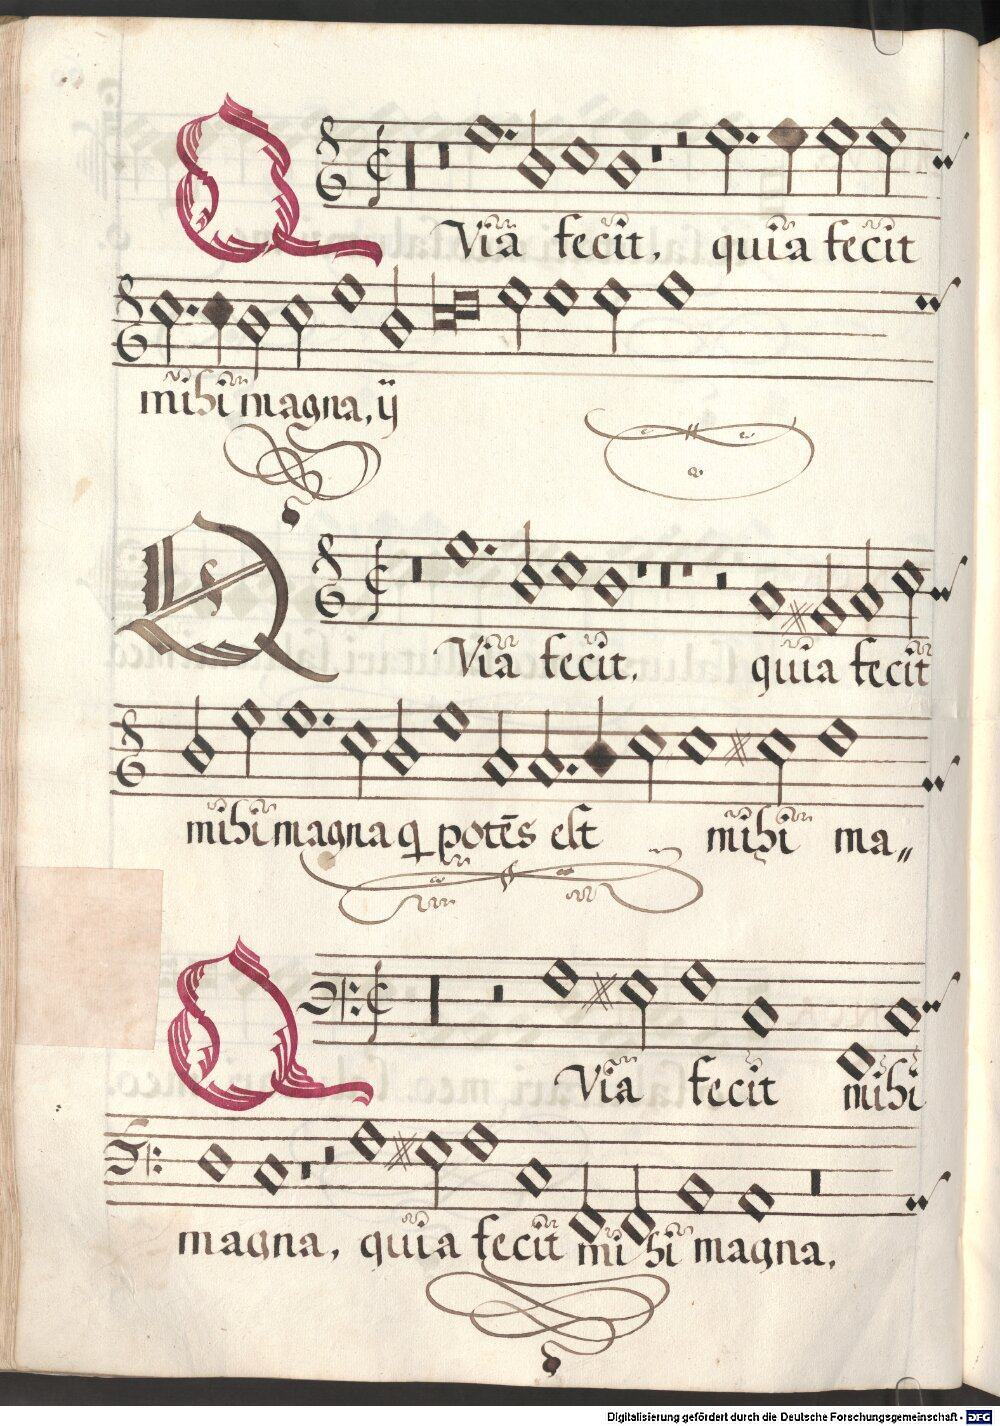 QVia fecit, quia fecit
mihi magna, ij
QVia fecit, quia fecit
mihi magna q potēs est mihi ma„
QVia fecit mihi
magna, quia fecit mihi magna,
Digitalisierung gefördert durch die Deutsche Forschungsgemeinschaft - DFG